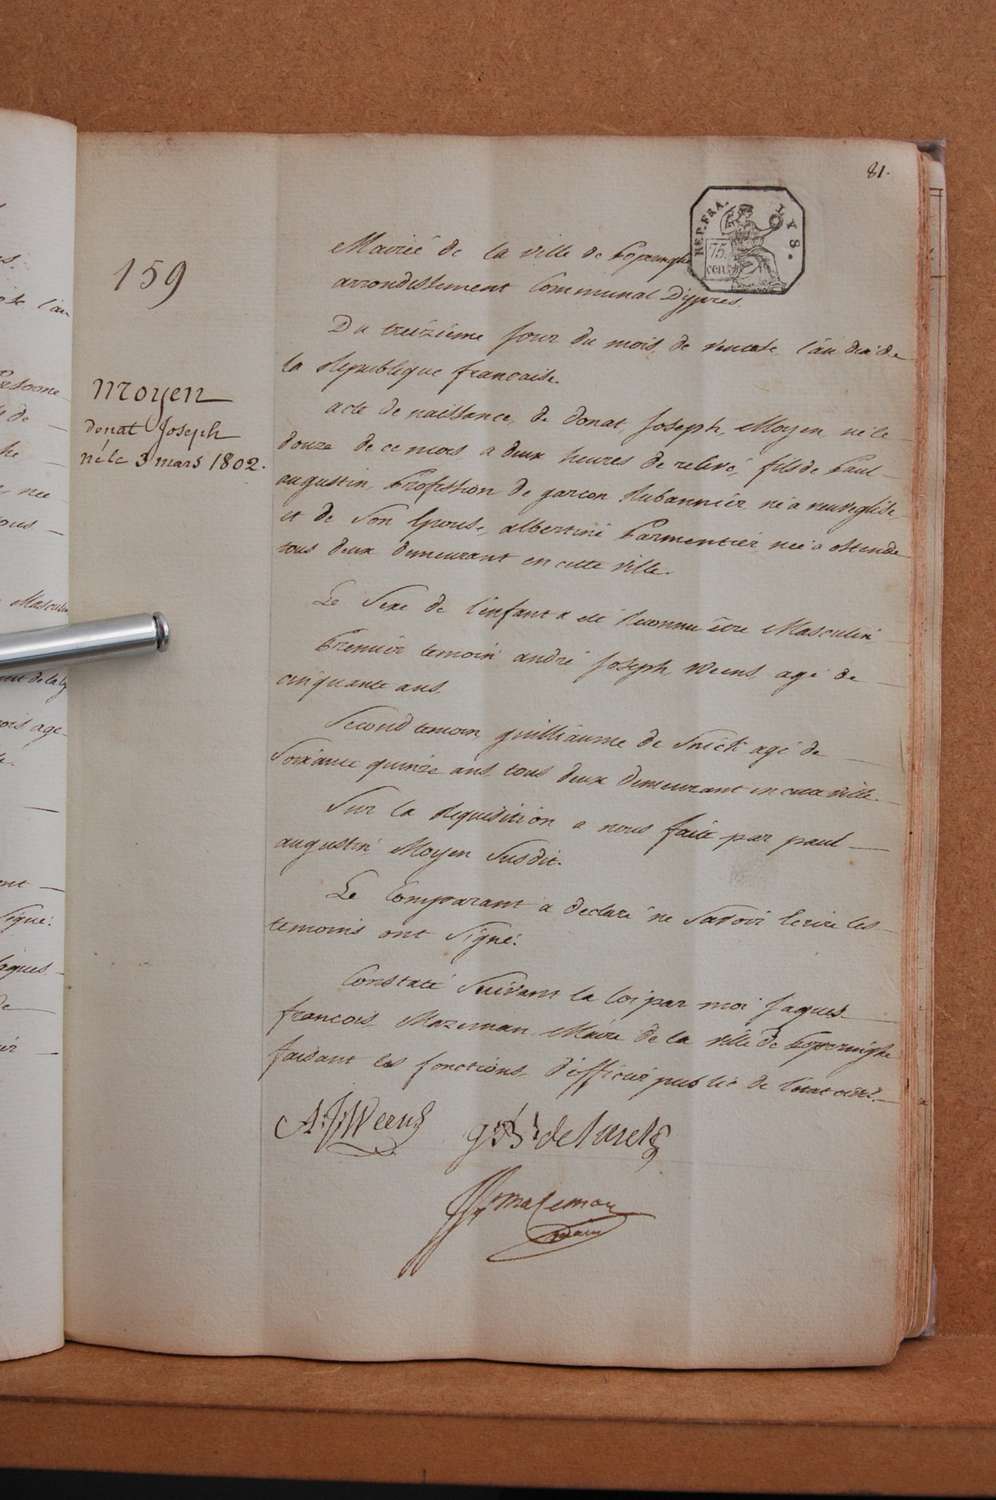 81.
REP. FRA.
LYS.
75.
cen.
159
Mairie de la ville de Poperinghe
arrondissement Communal D'ypres.
Du treizième jour du mois de ventose l'an dix de
la République francaise.
Moyen
donat Joseph
né le 3 mars 1802.
acte de naissance, de donat, Joseph, Moyen né le
douze de ce mois a deux heures de relevé, fils de Paul
augustin, Profession de garcon Rubannier, né a neuveglise
et de Son Epouse, albertine Parmentier née a ostende
tous deux demeurant en cette ville.
Le Sexe de l'enfant a été reconnu être Masculin
Premier temoin andré Joseph Weens, agé de
cinquante ans.
Second temoin, guilliaume de Snick agé de
Soixante quinze ans, tous deux demeurant en cette ville.
Sur la Requisition a nous faite par paul
augustin Moyen Susdit.
Le Comparant a declaré ne Savoir Ecrire les
temoins ont Signé.
Constaté Suivant la loi par moi Jaques
francois Mazeman Maire de la ville de Poperinghe
faisant les fonctions d'officier public de l'etat civil.
masculin
agé
signé
jaques